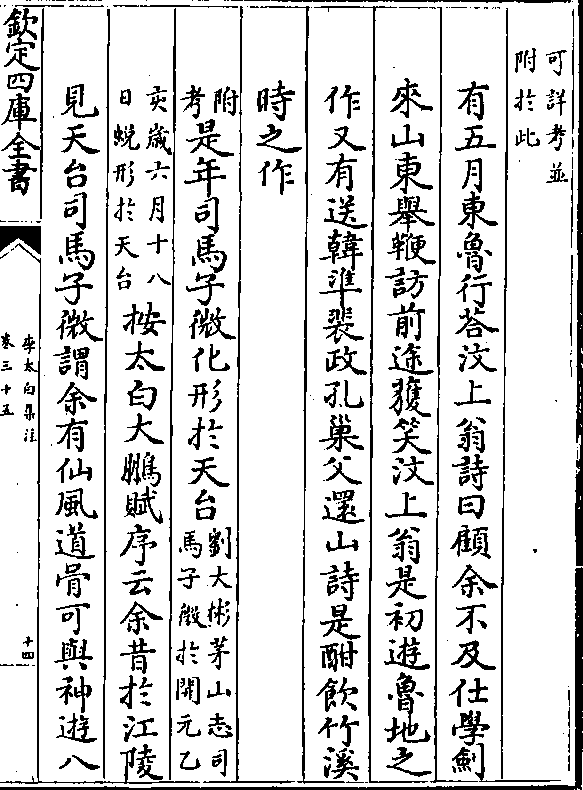 可詳考並
附於此
有五月東魯行荅汶上翁詩曰顧余不及仕學劍
來山東舉鞭訪前途獲笑汶上翁是初遊魯地之
作又有送韓準裴政孔巢父還山詩是酣飲竹溪
時之作
附考是年司馬子微化形於天台劉大彬茅山志司馬子微於開元乙
亥歲六月十八日蜕形於天台按太白大鵬賦序云余昔於江陵
見天台司馬子微謂余有仙風道骨可與神遊八
欽定四庫全書
李太白集注
卷三十五
十四